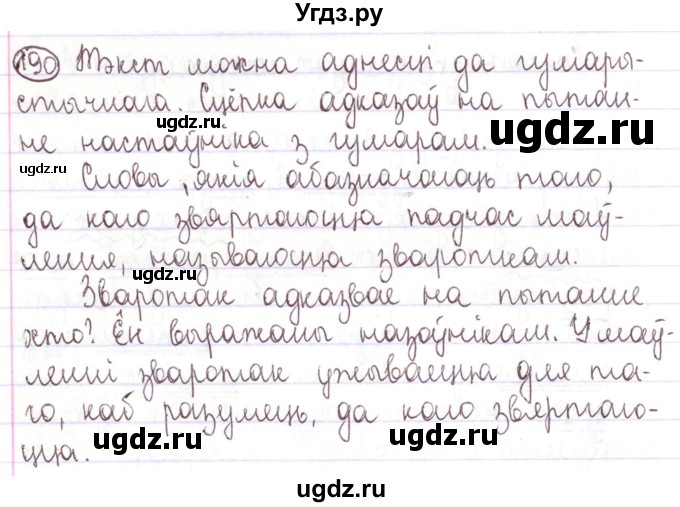 Угдз.ру
190 Тэкст можна аднесці да гумары-
стычнага. Сцёпка адказаў на пытан-
ugdz.ru
ugdz.ru
не настаўніка з гумарам.
ugdz.ru
Словы, якія абазначаюць таго,
да каго звяртаюцца падчас маў-
лення, называюцца звароткам.
ugdz.ru
Зваротак адказвае на пытанне
хто? Ён выражаны назоўнікам. У маў-
ленні зваротак ужываецца для та-
го, каб разумець, да каго звяртаю-
ugdz.ru
ugdz.ru
цца.
ugdz.ru